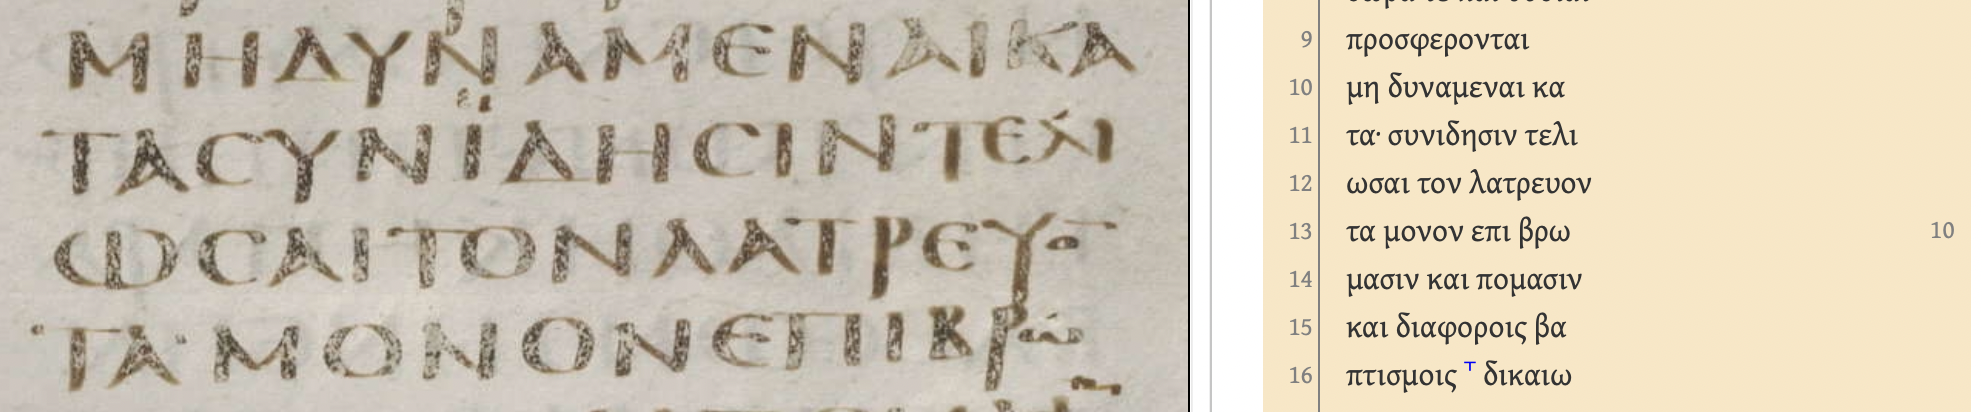 ΜΗΔΥΝΑΜΕΝΑΙΚΑ
ει
ΤΑϹΥΝΪΔΗϹΙΝΤΕΛΙ
ѠϹΑΙΤΟΝΛΑΤΡΕΥΟ̅
ΤΑ·ΜΟΝΟΝΕΠΙΒΡΩ
9 προσφερονται
10 μη δυναμεναι κα
11 τα· συνιδησιν τελι
12 ωσαι τον λατρευον
13 τα μονον επι βρω 10
14 μασιν και πομασιν
15 και διαφοροις βα
16 πτισμοις ⸆ δικαιω